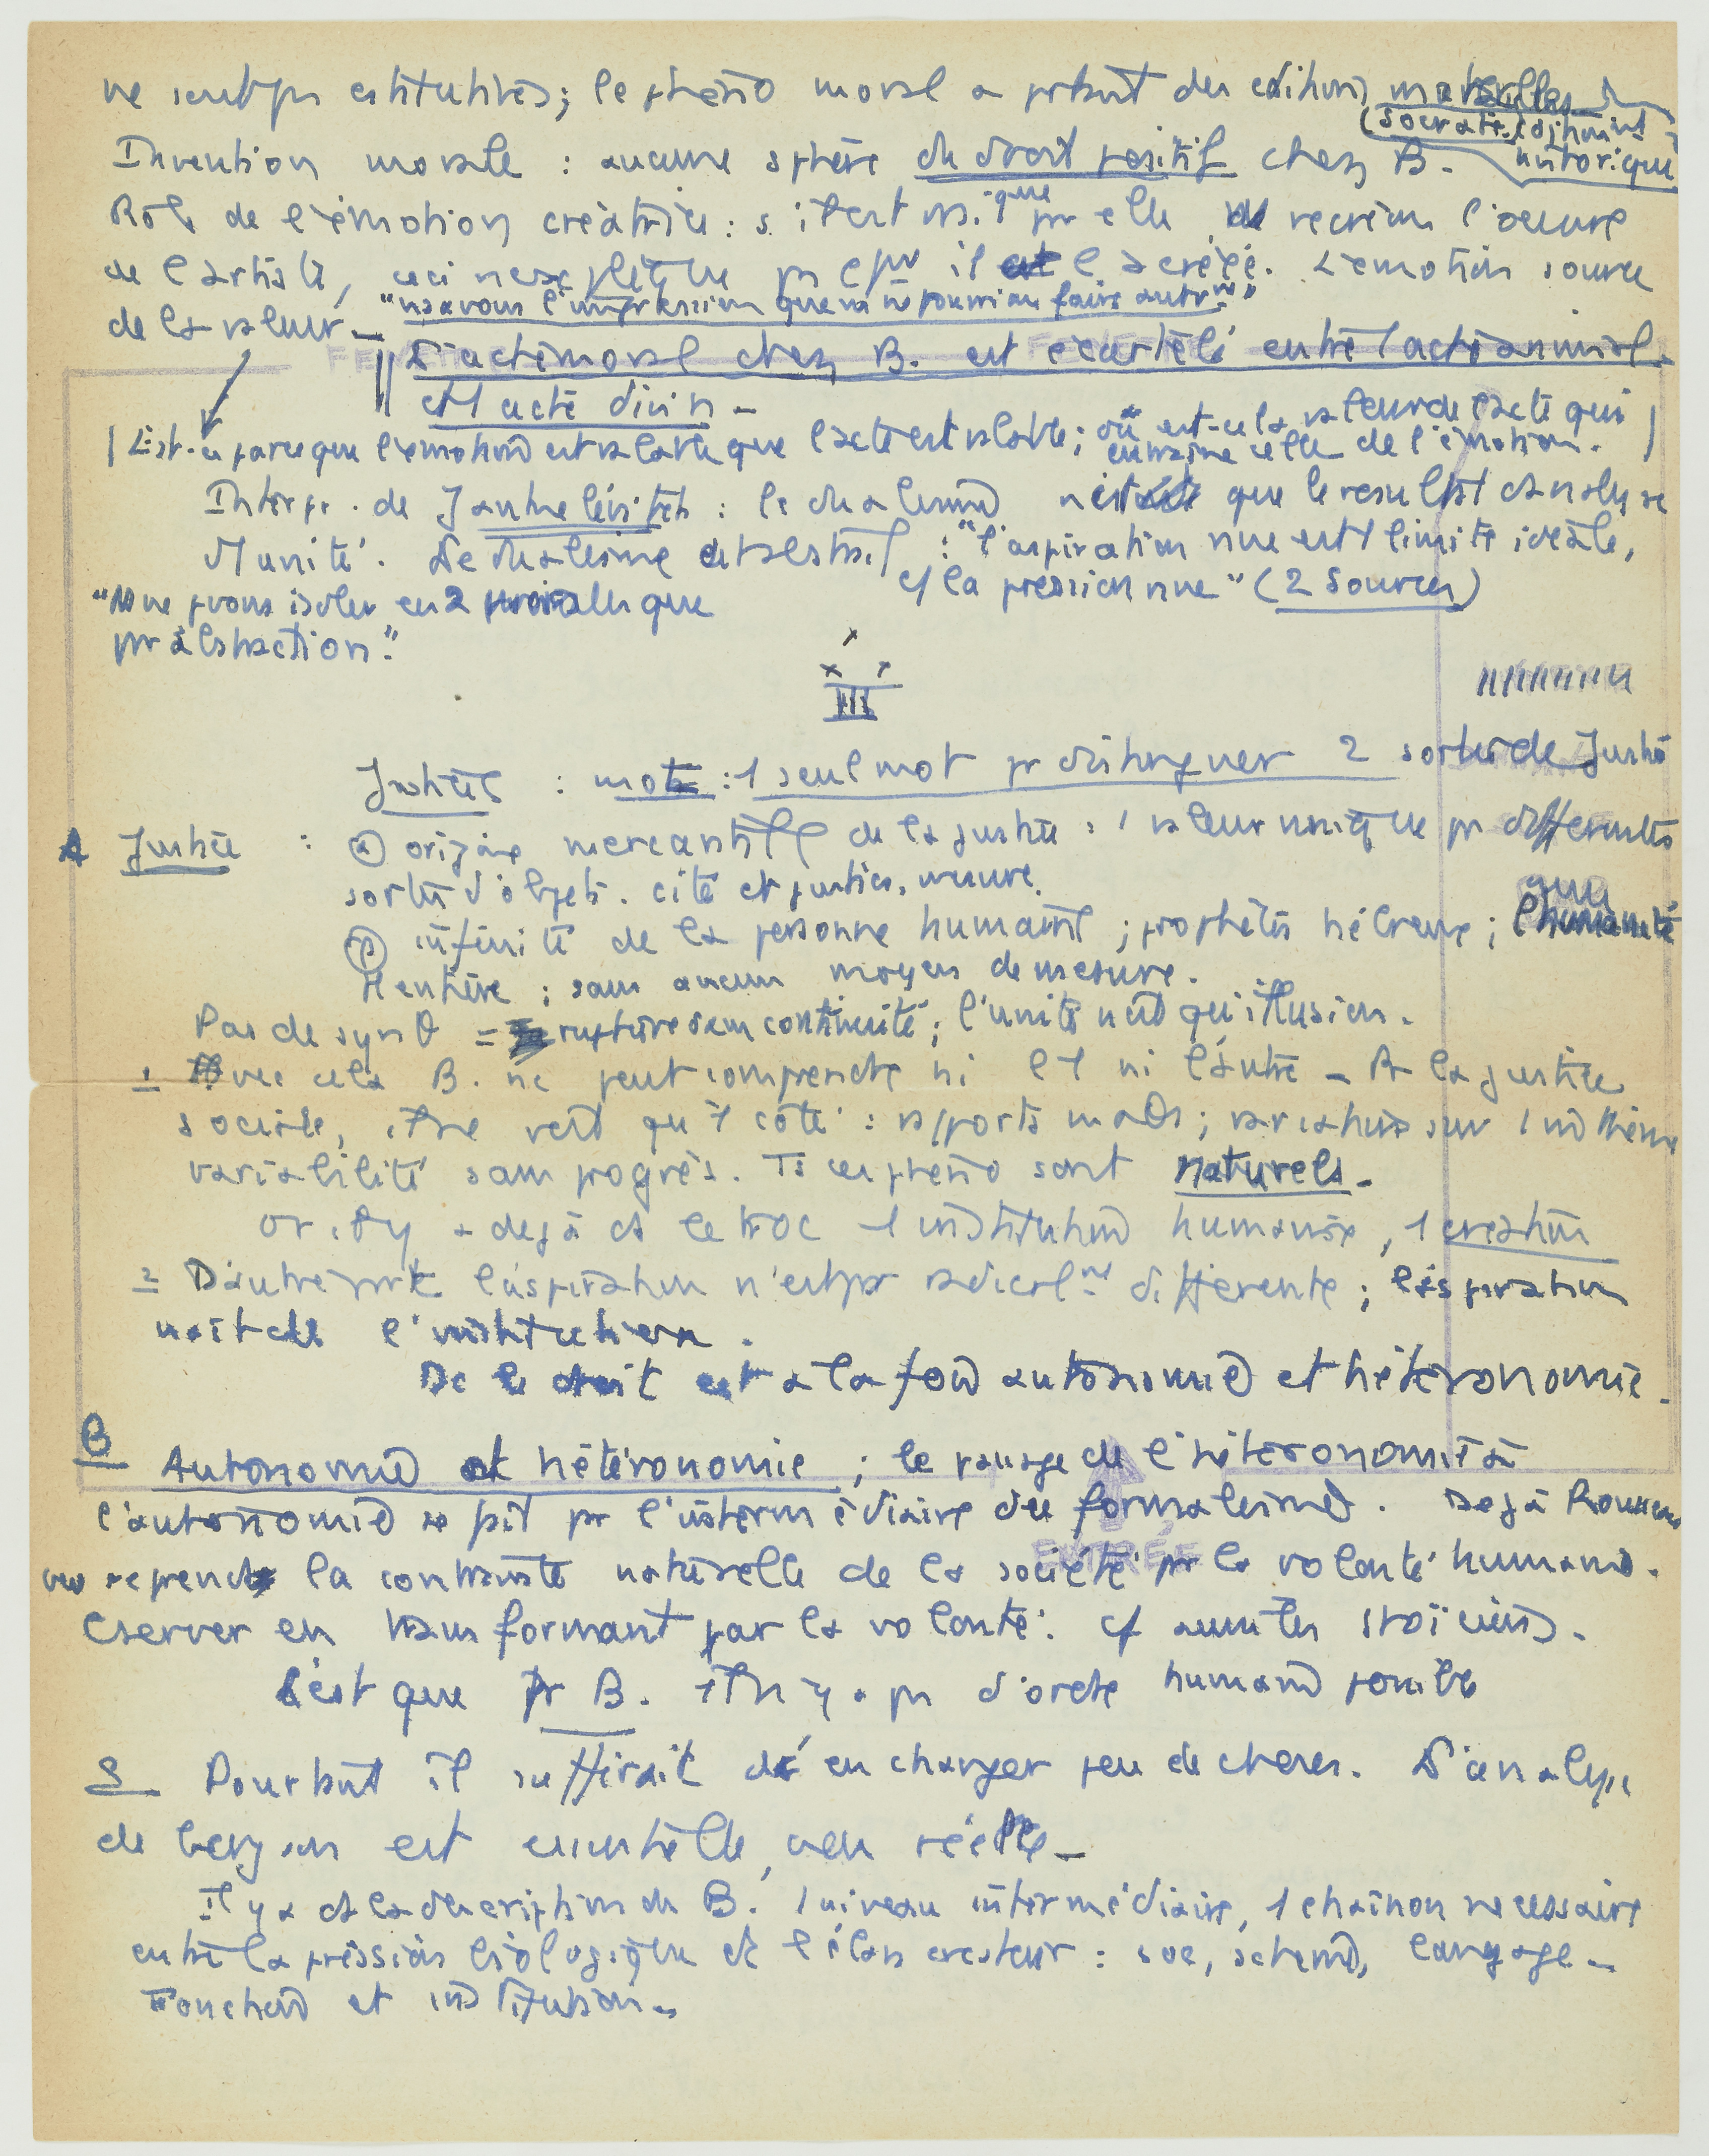 ne sont pas constitutives; le phéno moral a pourtant des conditions matérielles
(Socrate) historique
Invention morale : aucune sphère du droit positif chez B.
Rôle de l'émotion créatrice : s'il est vrai que par elle recréons l'oeuvre
de l'artiste, ceci n'explique pas il l'a créée. L'émotion source
de la valeur — "ns avons l'impression que ns ne pourrions faire autrmt"
L'acte moral chez B. est écartelé entre l'acte animal
et l'acte divin —
Est-ce parce que l'émotion est valable que l'acte est valable; ou est-ce la valeur de l'acte qui
entraine celle de l'émotion.
Interpr. de Jankélévitch : le dualisme n'est que le résultat d'analyse
d'1 unité. Le dualisme est abstrait : "l'aspiration nue est 1 limite idéale,
cf la pression nue" (2 Sources)
"Ns ne pvons isoler en 2 morales que
pr abstraction."
III
Justice : mot : 1 seul mot pr distinguer 2 sortes de Justice
A Justice : a) origine mercantile de la justice : 1 valeur unique pr différentes
sortes d'objets. cité et justice, mesure.
b) infinité de la personne humaine; prophètes hébreux; l'humanité
entière; sans aucun moyen de mesure.
Pas de synθ = rupture sans continuité; l'unité n'est qu'illusion.
1 Avec cela B. ne peut comprendre ni l'1 ni l'autre — A la justice
sociale, il ne voit qu'1 côté : rapports; variations sur 1 thème
variabilité sans progrès. Ts ces phéno sont naturels —
or il y a déjà ds le troc 1 institution humaine, 1 création
2 D'autre part l'aspiration n'est pas radicalmt différente; l'aspiration
naît de l'institution.
Dc le droit est à la fois autonomie et hétéronomie.
B Autonomie et hétéronomie; le passage de l'hétéronomie à
l'autonomie se fait pr l'intermédiaire du formalisme. Déjà Rousseau
reprend la contrainte naturelle de la société pr la volonté humaine.
Cserver en transformant par la volonté : cf aussi les stoïciens.
C'est que Pr B. il n'y a pas d'ordre humain possible
Pourtant il suffirait d'en changer peu de choses. L'analyse
de bergson est essentielle, non réelle —
Il y a ds la description de B. 1 niveau intermédiaire, 1 chaînon nécessaire
entre la pression biologique et l'élan créateur : soc, schéma, langage —
fonction et institution —